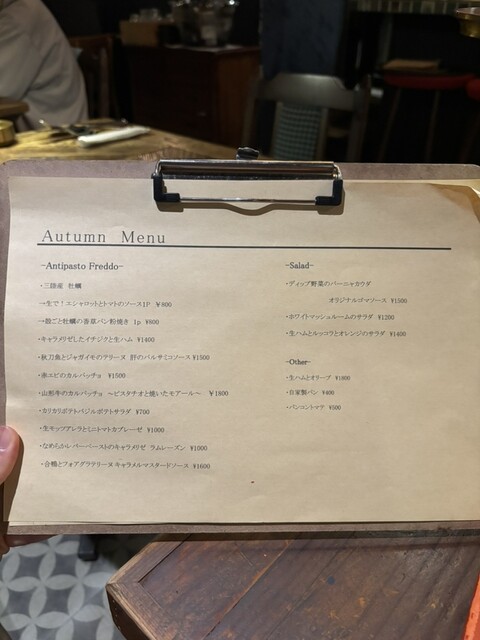 Autumn Menu
~Antipasto Freddo~
・三陸産 牡蠣
→生で！エシャロットとトマトのソース1P ¥800
→殻ごと牡蠣の香草パン粉焼き 1p ¥800
・キャラメリゼしたイチジクと生ハム ¥1400
・秋刀魚とジャガイモのテリーヌ 肝のバルサミコソース ¥1500
・赤エビのカルパッチョ ¥1500
・山形牛のカルパッチョ ～ピスタチオと焼いたモアール～ ¥1800
・カリカリポテトバジルポテトサラダ ¥700
・生モッツアレラとミニトマトカプレーゼ ¥1000
・なめらかレバーペーストのキャラメリゼ ラムレーズン ¥1000
・合鴨とフォアグラテリーヌ キャラメルマスタードソース ¥1600
~Salad~
・ディップ野菜のバーニャカウダ
オリジナルゴマソース ¥1500
・ホワイトマッシュルームのサラダ ¥1200
・生ハムとルッコラとオレンジのサラダ ¥1400
~Other~
・生ハムとオリーブ ¥1800
・自家製パン ¥400
・パンコントマテ ¥500